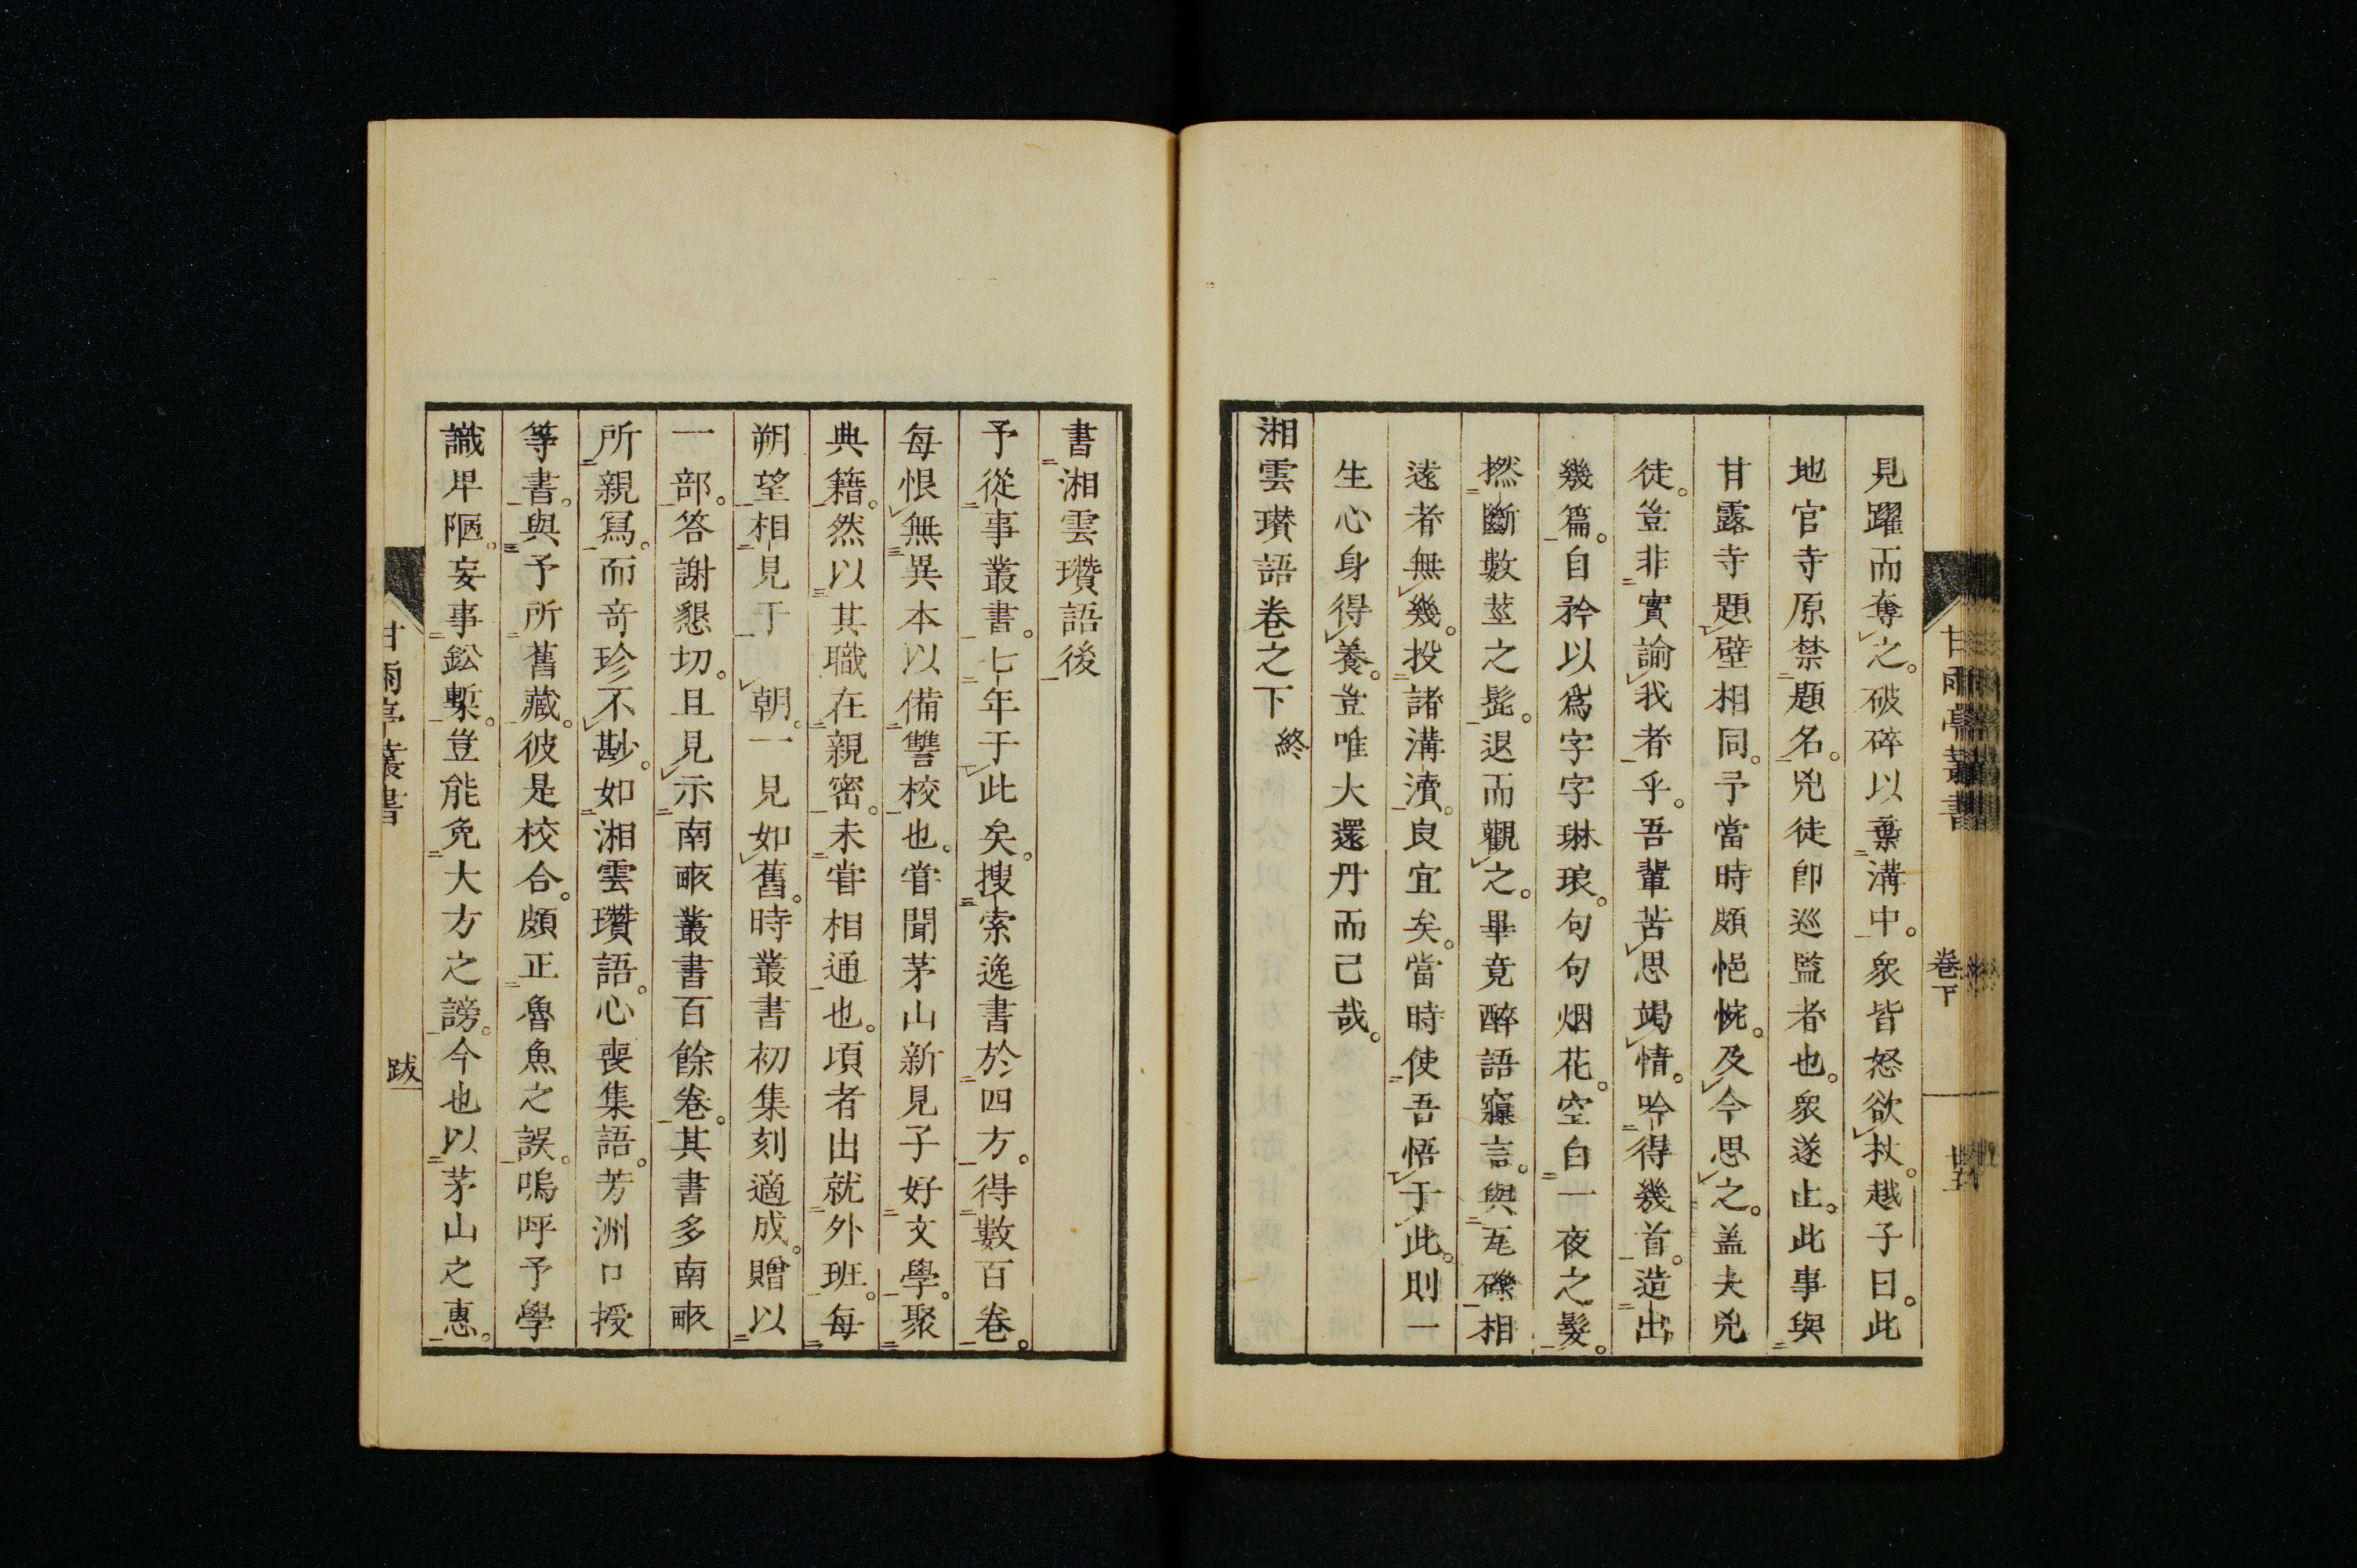 見躍而奪之。破碎以棄溝中。衆皆怒欲杖。越子曰。此
地官寺原禁題名。兇徒卽巡監者也。衆遂止。此事與
甘露寺題壁相同。予當時頗悒惋。及今思之。蓋夫兇
徒。豈非實諭我者乎。吾輩苦思竭情。吟得幾首。造出
幾篇。自矜以爲字字琳琅。句句烟花。空白一夜之髮。
撚斷數莖之髭。退而觀之。畢竟醉語寱言。與瓦礫相
遠者無幾。投諸溝瀆。良宜矣。當時使吾悟于此。則一
生心身得養。豈唯大還丹而已哉。
湘雲瓚語卷之下 終
甘雨亭叢書
卷下
書湘雲瓚語後
予從事叢書。七年于此矣。搜索逸書於四方。得數百卷。
每恨無異本以備讐校也。嘗聞茅山新見子好文學。聚
典籍。然以其職在親密。未嘗相通也。頃者出就外班。每
朔望相見于 朝。一見如舊。時叢書初集刻適成。贈以
一部。答謝懇切。且見示南畝叢書百餘卷。其書多南畝
所親寫。而奇珍不尠。如湘雲瓚語。心喪集語。芳洲口授
等書。與予所舊藏。彼是校合。頗正魯魚之誤。嗚呼予學
識卑陋。妄事鉛槧。豈能免大方之謗。今也以茅山之惠。
甘雨亭叢書
跋